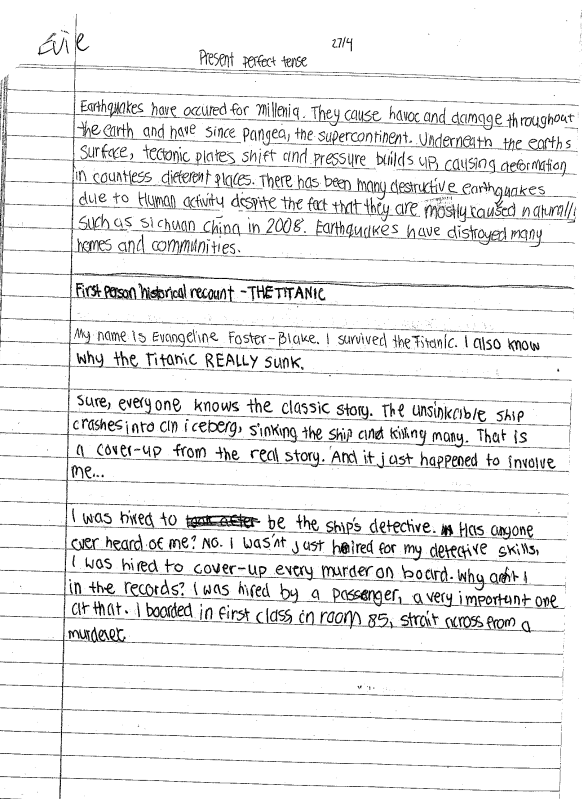 Evie
27/4
Present perfect tense
Earthquakes have occured for millenia. They cause havoc and damage throughout
the earth and have since Pangea, the supercontinent. Underneath the earths
surface, tectonic plates shift and pressure builds up, causing deformation
in countless dieferent places. There has been many destructive earthquakes
due to Human activity despite the fact that they are mostly caused naturally
such as sichuan china in 2008. Earthquakes have distroyed many
homes and communities.
First person historical recount - THE TITANIC
My name is Evangeline Foster-Blake. I survived the Titanic. I also know
why the Titanic REALLY sunk.
Sure, everyone knows the classic story. The unsinkable ship
crashes into an iceberg, sinking the ship and killing many. That is
a cover-up from the real story. And it just happened to involve
me...
I was hired to be the ship's detective. Has anyone
ever heard of me? No. I was'nt just haired for my detective skills,
I was hired to cover-up every murder on board. Why arn't I
in the records? I was hired by a passenger, a very important one
at that. I boarded in first class in room 85, strait across from a
murderer.